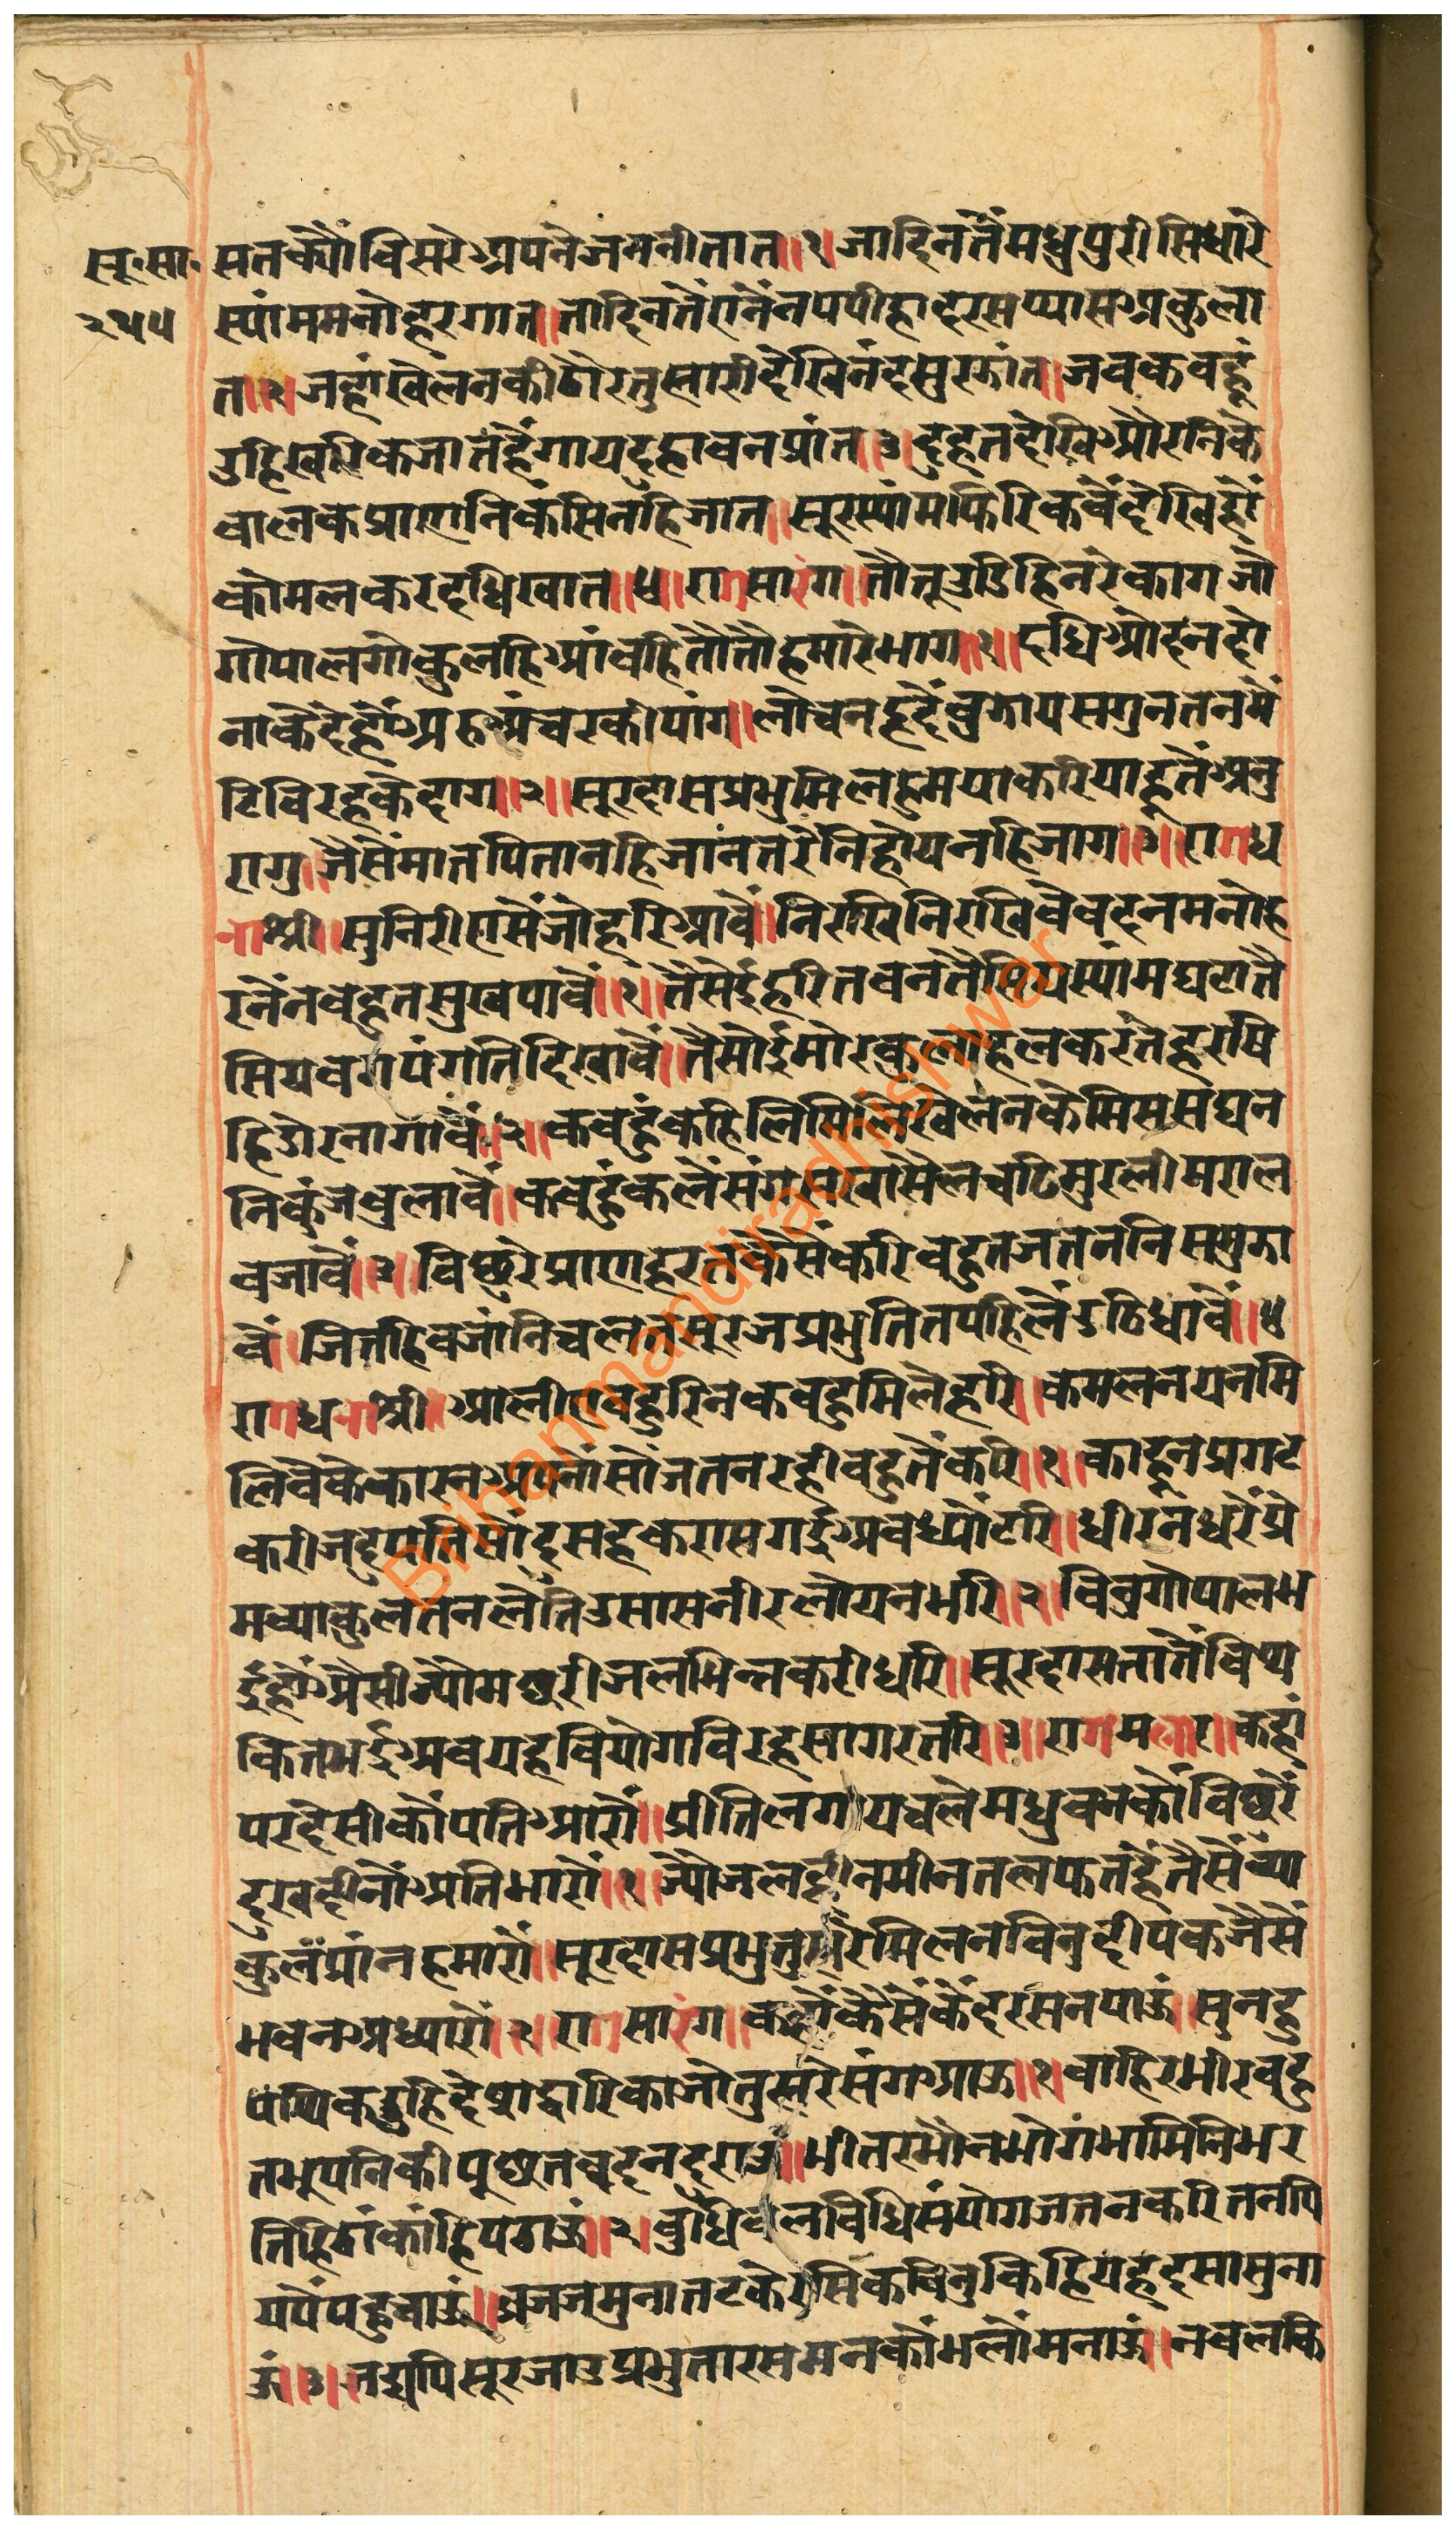 सू॰सा॰ सतक्यौंविसरेअपनेजननीतात॥१॥जादिनतैंमधुपुरीसिधारे
२५५ स्यांममनोहरगात॥तादिनतैंएनैंनपपीहादरसप्यासअकुला
त॥२॥जहांखेलनकीठौरतुम्हारीदेखिनंदमुरझांत॥जबकबहूं
उठिखरिकजातहैंगायदुहावनप्रांत॥३॥दुहतदेखिऔरनिके
बालकप्राणनिकसिनहिजात॥सूरस्यांमफिरिकबैंदेखिहौं
कोमलकरदधिखात॥४॥रागसारंग॥तौतूउडिहिनरेकागजौ
गोपालगोकुलहिआंवहितौतौहमारेभाग॥१॥दधिओदनदो
नाकेदेहौंअरुअंचरकीपाग॥लोचनहृदैंबुझायसगुनतनमें
टिविरहकेदाग॥२॥सूरदासप्रभुमिलहुमयाकरियाहूतैंअनु
रागु॥जैसैंमातपितानहिजांनतरैनिहोयनहिजाग॥३॥रागध
नाश्री॥सुनिरीएसैंजोहरिआवैं॥निरखिनिरखिवैवदनमनोह
रनैंनबहुतसुखपावैं॥१॥तैसेईहरितबनतैसियस्यांमघटातै
सियबगपंगतिदिखावैं॥तैसोईमोरकुलाहलकरतहरषि
हिडोरनागावैं॥२॥कबहुकहिलिमिलिखेलनकेमिससघन
निकुंजबुलावैं॥कबहुंकलैंसंगसखासैलचढिमुरलीमराल
बजावैं॥३॥विछुरेप्राणहरतकैसेंकरिबहुतजतननिसमुझा
वैं॥जितहिबजांनिचलतसूरजप्रभुतितपहिलैंउठिधावैं॥४
रागधनाश्री॥आलीएबहुरिनकबहुमिलेहरि॥कमलनयनमि
लिवैकेकारनअपनांसौंजतनरहीबहुतैंकरि॥१॥काहूनप्रगट
करीजदुपतिसोंदुसहकरासगईअवध्यौंटरि॥धीरनधरेंप्रे
मव्याकुलतनलैतिउसासनीरलोयनभरि॥२॥विनुगोपालभ
ईहौंऔसीज्यौमछरीजलभिन्नकरीधरि॥सूरदासनातैंविथ
कितभईअबयहवियोगविरहसागरतरि॥३॥रागमलार॥कहां
परदेसीकौपतिआरौ॥प्रीतिलगायचलेमधुवनकौंविछुरें
दुखदीनौंअतिभारौ॥१॥ज्यौजलहीनमीनतलफतहैंतैसैंव्या
कुलप्रांनहमारौ॥सूरदासप्रभुतुम्हरेमिलनविनुदीपकजैसैं
भवनअध्यारौ॥२॥रागसारंग॥कहौंकैसैंकेंदरसनपाऊं॥सुनहु
पंथिकउहिदेसद्वारिकाजोतुम्हरेसंगआऊं॥१॥बाहिरभीरबहु
तभूपनिकीपूछतवदनदुराऊं॥भीतरभौनभोगभामिनिभर
तिहिठांकाहिपठाऊं॥२॥बुधिबलविधिसंयोगजतनकरितनपि
यपैंपहुचाऊं॥व्रजजमुनातटकेरसिकविनुकिहियहदसासुना
ऊं॥३॥तद्यपिसूरजाउप्रभुतारसमनकौंभलौंमनाऊं॥नवलकि
Brihanmandiradhishwar